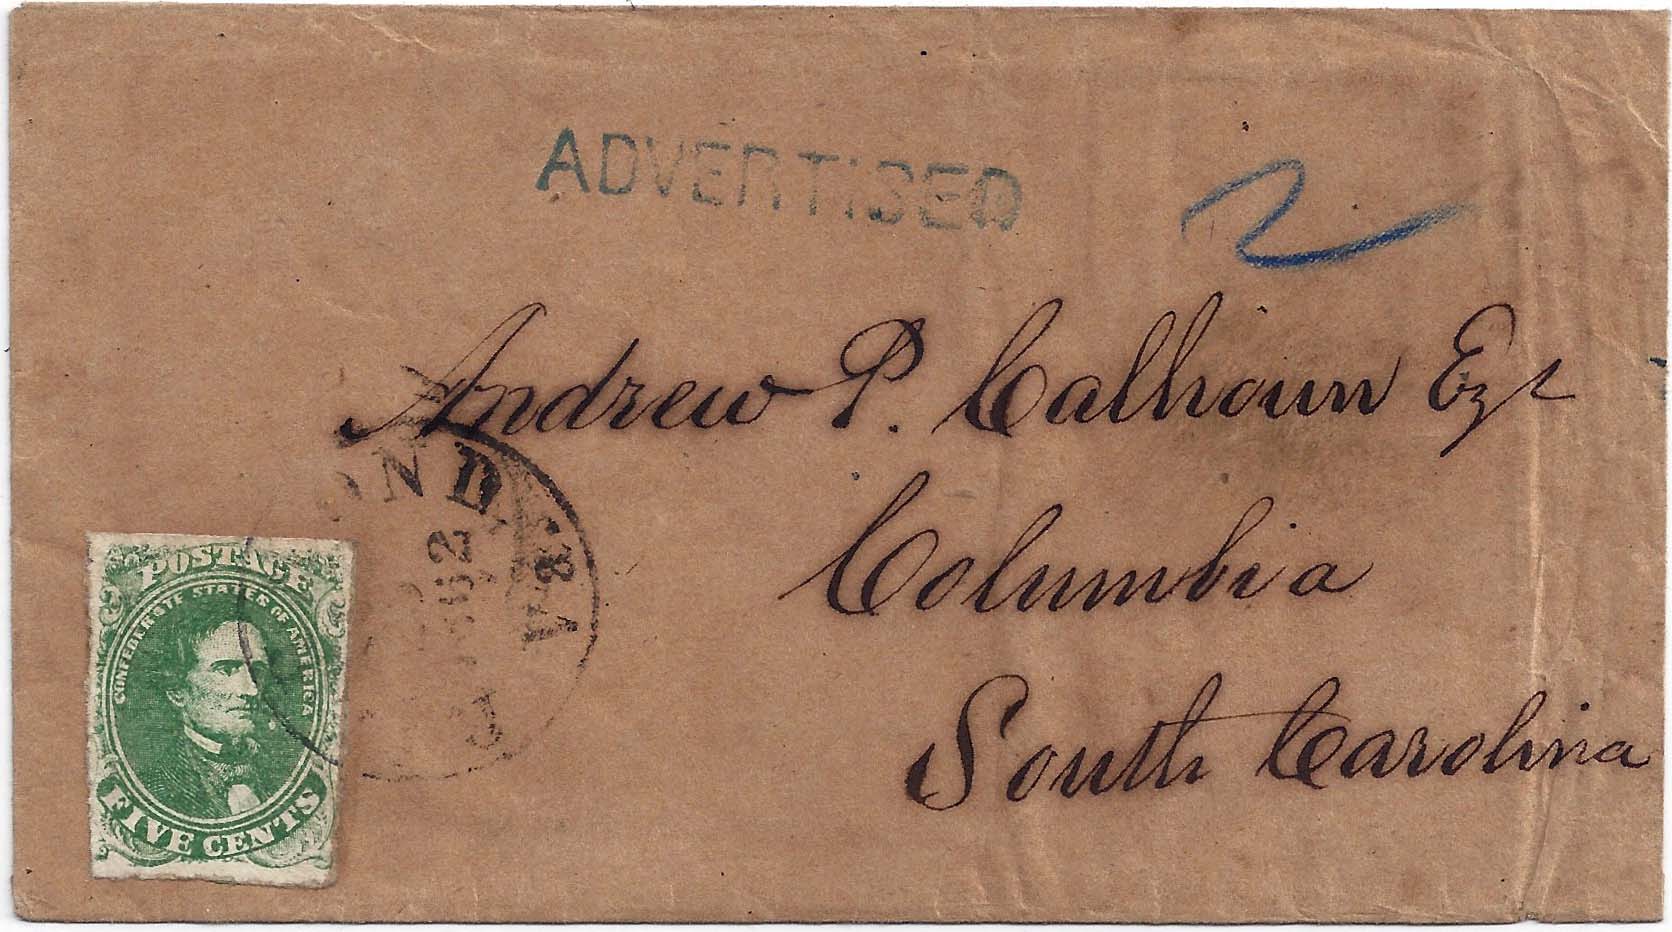 ADVERTISED
2
Andrew P. Calhoun Esq
Columbia
South Carolina
OND. VA.
1862
POSTAGE
CONFEDERATE STATES OF AMERICA
FIVE CENTS